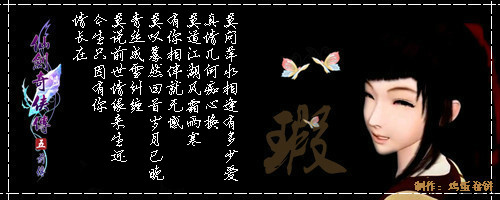 莫问萍水相逢有多少爱
真情几何痴心换
莫道江湖风霜雨寒
有你相伴就无憾
莫以蓦然回首岁月已晚
青丝成雪纠缠
莫说前世情缘来生还
今生只因有你
情长在
仙劍奇俠傳
五前传
瑕
制作：鸡蛋卷饼